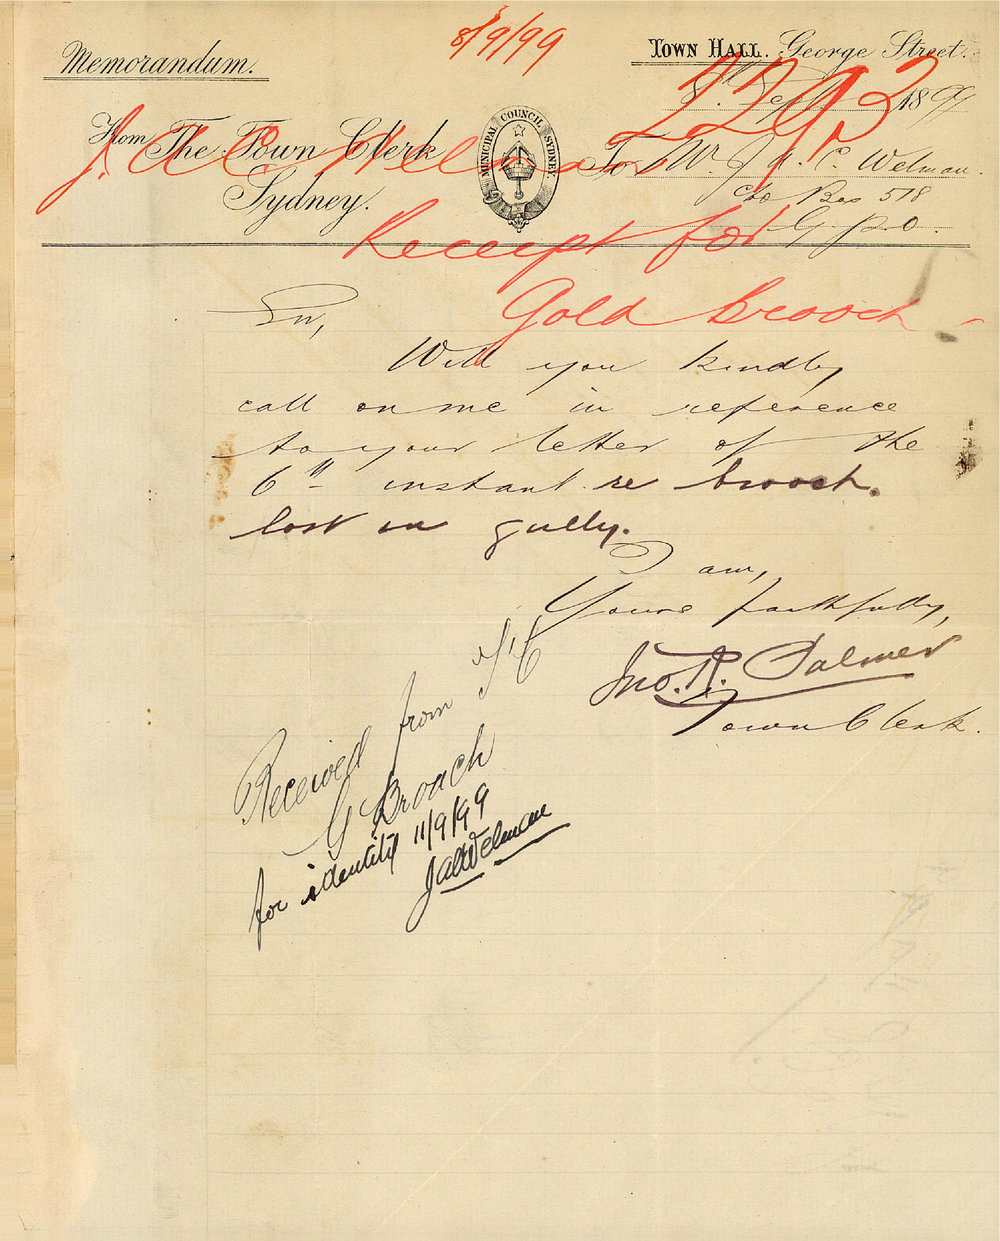 8/9/99
Memorandum.
Town Hall. George Street.
2293
8th Sept 1899
From The Town Clerk
Sydney.
MUNICIPAL COUNCIL SYDNEY.
To Mr. J. A. C. Welman.
c/o Box 578
G. P. O.
J. A. C. Welman
Receipt for
Gold Brooch -
Sir,
Will you kindly
call on me in reference
to your letter of the
6th instant re brooch.
lost in gully.
I am,
Yours faithfully,
Jno. R. Palmer
Town Clerk.
Received from T/C
G Broach
for identity 11/9/99
JACWelman